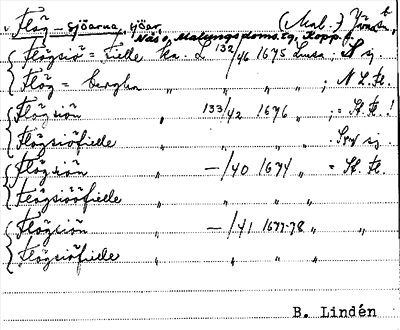 Flög - sjöarna, sjöar (Mal. ?) 
Näs o. Malungs doms. tg, Kopp.
Flögsiö = Fielle Ska. L 132/46 1675 Lusa ; sj.
Flög = berghn " " " " ; N. L. Fl.
Flögsiön " 133/42 1676 " ; = St. Fl. !
Flögsiöfielle " " " " . sj.
Flögsiön " —/40 1674 " = St. Fl.
Flögsiöfielle " " " "
Flögsiön " —/41 1677-78 " "
Flögsiöfielle " " " "
B. Lindén